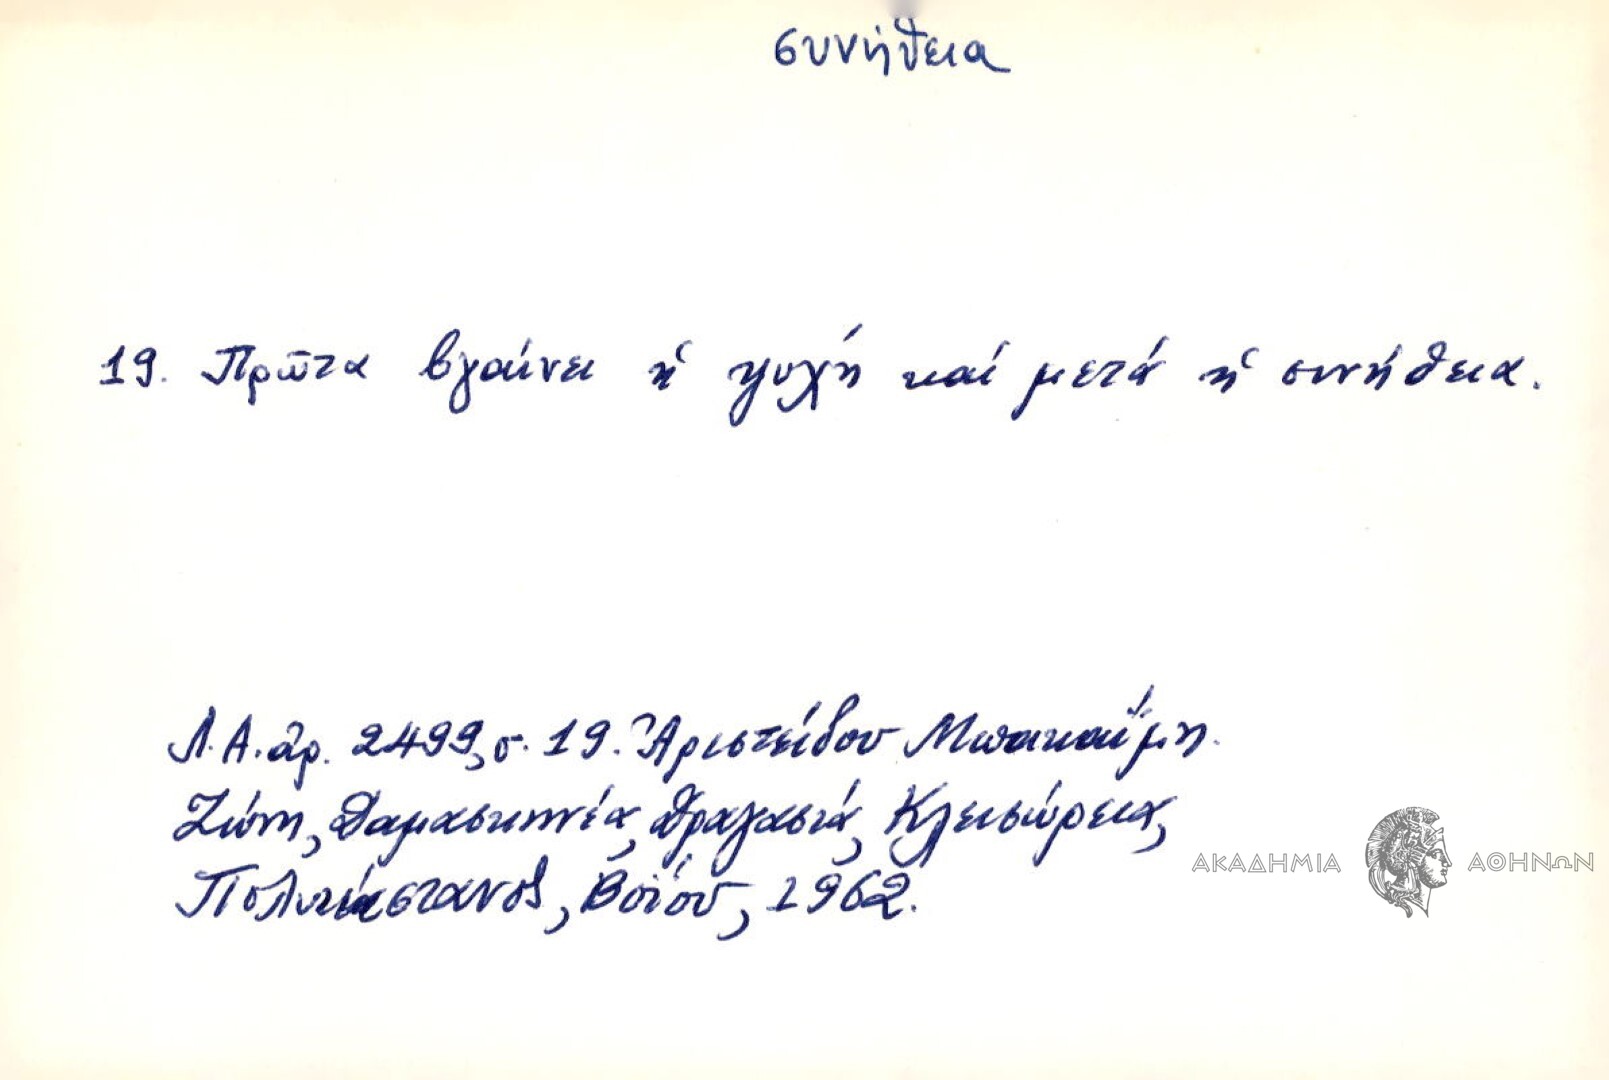 συνήθεια
19. Πρῶτα βγαίνει ἡ ψυχή καί μετά ἡ συνήθεια.
Λ.Α. ἀρ. 2499, σ. 19. Ἀριστείδου Μπακαΐμη.
Ζώνη, Δαμασκηνέα, Δραγασιά, Κλεισώρεια,
Πολυκάστανος, Βοΐου, 1962.
ΑΚΑΔΗΜΙΑ ΑΘΗΝΩΝ